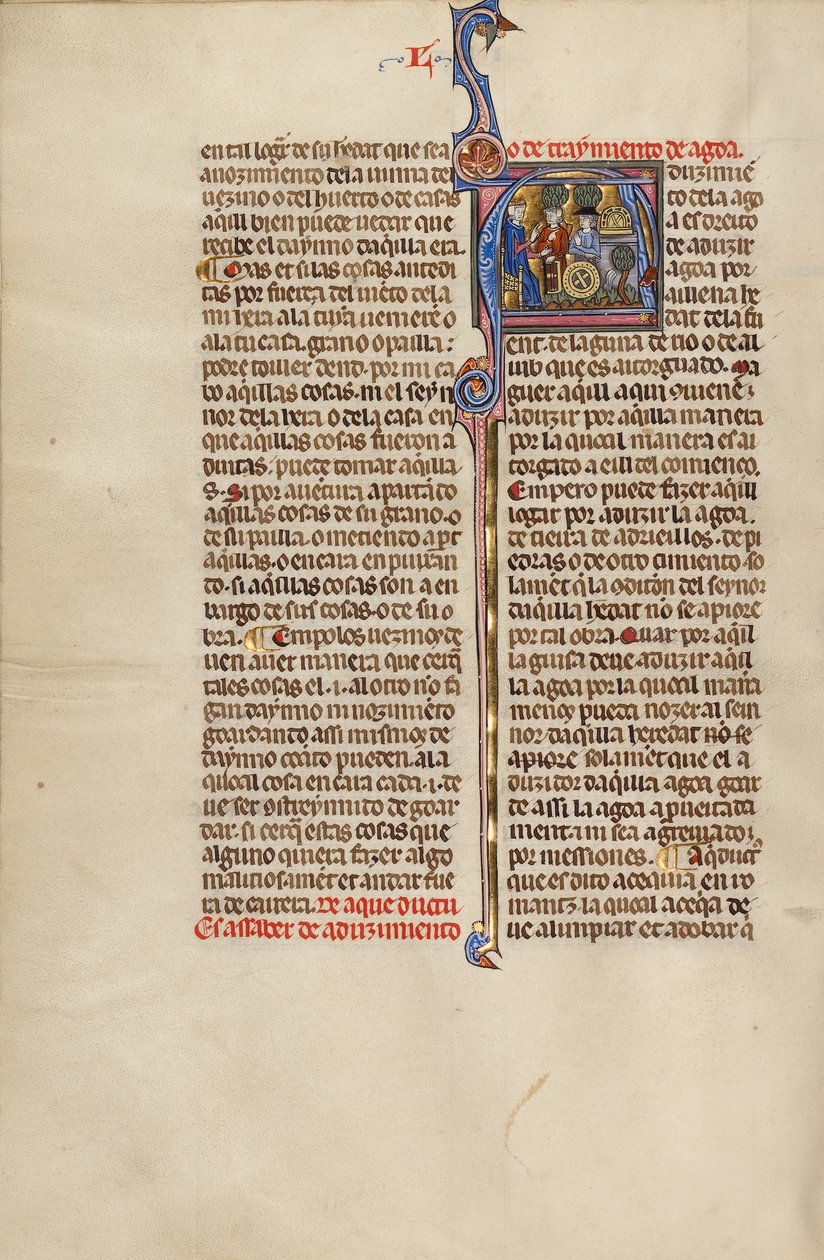 L
en tal logar de su hedat que sea
auozimiento dela uinna del
uezino o del huerto o de casas
aq̃ill bien puede uedar que
recibe el daynno daq̃illa era.
Mas et si las cosas antedi
tas por fuerça del uiento dela
mi hera ala tiirra uenieren o
ala tu casa. grano o pailla:
podre toiller dend. por mi ca
bo aq̃illas cosas. ni el seyn
nor dela hera o dela casa en
que aq̃illas cosas fueron a
duitas. puede tomar aq̃illa
s. Si por auẽtura apartãdo
aq̃illas cosas de su grano. o
de su pailla. o metiendo a pt
aq̃illas. o encara en puiran
do. si aq̃illas cosas son a en
bargo de sus cosas. o de su o
bra. Emp̃o los uezinos de
uen auer manera que cerq̃
tales cosas el .i. al otro nõ fa
gan daynno ni nozimiẽto
goardando assi mismos de
daynno cõito pueden. ala
quoal cosa encara cada .i. de
ue ser 9streynnido de goar
dar. si cerq̃ estas cosas que
alguno quiera fazer algo
malitiosamẽt et andar fue
ra de carrera. De aque ductu
Es assaber de aduzimiento
o de traymiento de agoa.
aduzimie
to dela ago
a es dreito
de aduzir
agoa por
aillena he
dat dela fu
ent. de laguna de rio o de al
uib que es aitorguado. Ma
guer aq̃ill a qui 9uiene
aduzir por aq̃illa manera
por la quoal manera es ai
torgado a eill del comienço.
Empero puede fazer aq̃ill
logar por aduzir la agoa.
de tierra de adrieillos. de pi
edras o de otro cimiento. so
lamẽt q̃ la 9diciõn del seynor
daq̃illa hedat nõ se apiore
por tal obra. Quar por aq̃ill
la guisa deue aduzir aq̃ill
la agoa por la quoal mañra
menos pueda nozer al sein
nor daq̃illa heredat nõ se
apiore solamẽt que el a
duzidor daq̃illa agoa goar
de assi la agoa apueitada
ment. ni sea agreuiado
por messiones. Aq̃duct9
que es dito aceq̃uia en ro
mantz. la quoal aceq̃a de
ue alimpiar et adobar q̃